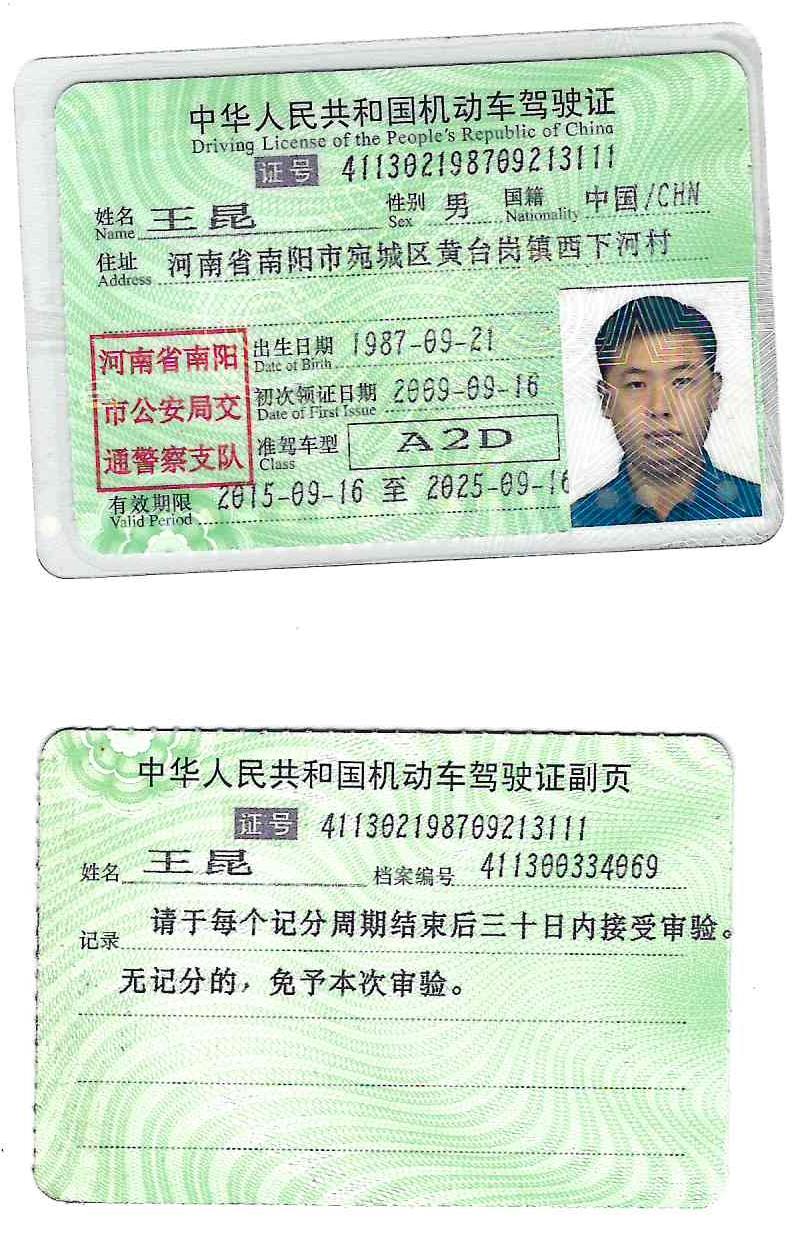 中华人民共和国机动车驾驶证
Driving License of the People's Republic of China
证号 411302198709213111
姓名 王昆 性别 男 国籍 中国/CHN
Name Sex Nationality
住址 河南省南阳市宛城区黄台岗镇西下河村
Address
河南省南阳
市公安局交
通警察支队
出生日期 1987-09-21
Date of Birth
初次领证日期 2009-09-16
Date of First Issue
准驾车型 A2D
Class
有效期限 2015-09-16 至 2025-09-16
Valid Period
中华人民共和国机动车驾驶证副页
证号 411302198709213111
姓名 王昆 档案编号 411300334069
记录 请于每个记分周期结束后三十日内接受审验。
无记分的，免予本次审验。